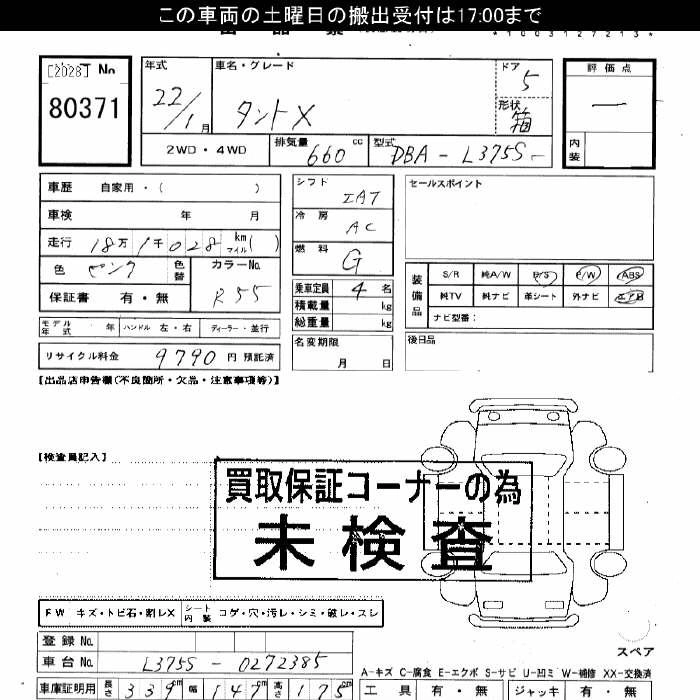 この車両の土曜日の搬出受付は17:00まで
*1003127213*
[2028] No
80371
年式
22/1月
車名・グレード
タントX
ドア
5
形状
箱
評価点
―
内装
2WD・4WD
排気量
660 cc
型式
DBA-L375S-
車歴 自家用・( )
車検 年 月
走行 18万1千028 km マイル( )
色 ピンク 色替
カラーNo.
R55
保証書 有・無
モデル年式 年 ハンドル 左・右 ディーラー・並行
リサイクル料金 9790 円 預託済
シフト
IAT
冷房
AC
燃料
G
乗車定員 4 名
積載量 kg
総重量 kg
名変期限
月 日
セールスポイント
装備品
S/R 純A/W P/S P/W ABS
純TV 純ナビ 革シート 外ナビ エアB
ナビ型番:
後日品
【出品店申告欄(不良箇所・欠品・注意事項等)】
【検査員記入】
買取保証コーナーの為
未検査
FW キズ・トビ石・割レX シート内装 コゲ・穴・汚レ・シミ・破レ・スレ
登録No.
車台No. L375S-0272385
車庫証明用 長さ 339cm 幅 147cm 高さ 175cm
スペア
A-キズ C-腐食 E-エクボ S-サビ U-凹ミ W-補修 XX-交換済
工具 有・無 ジャッキ 有・無